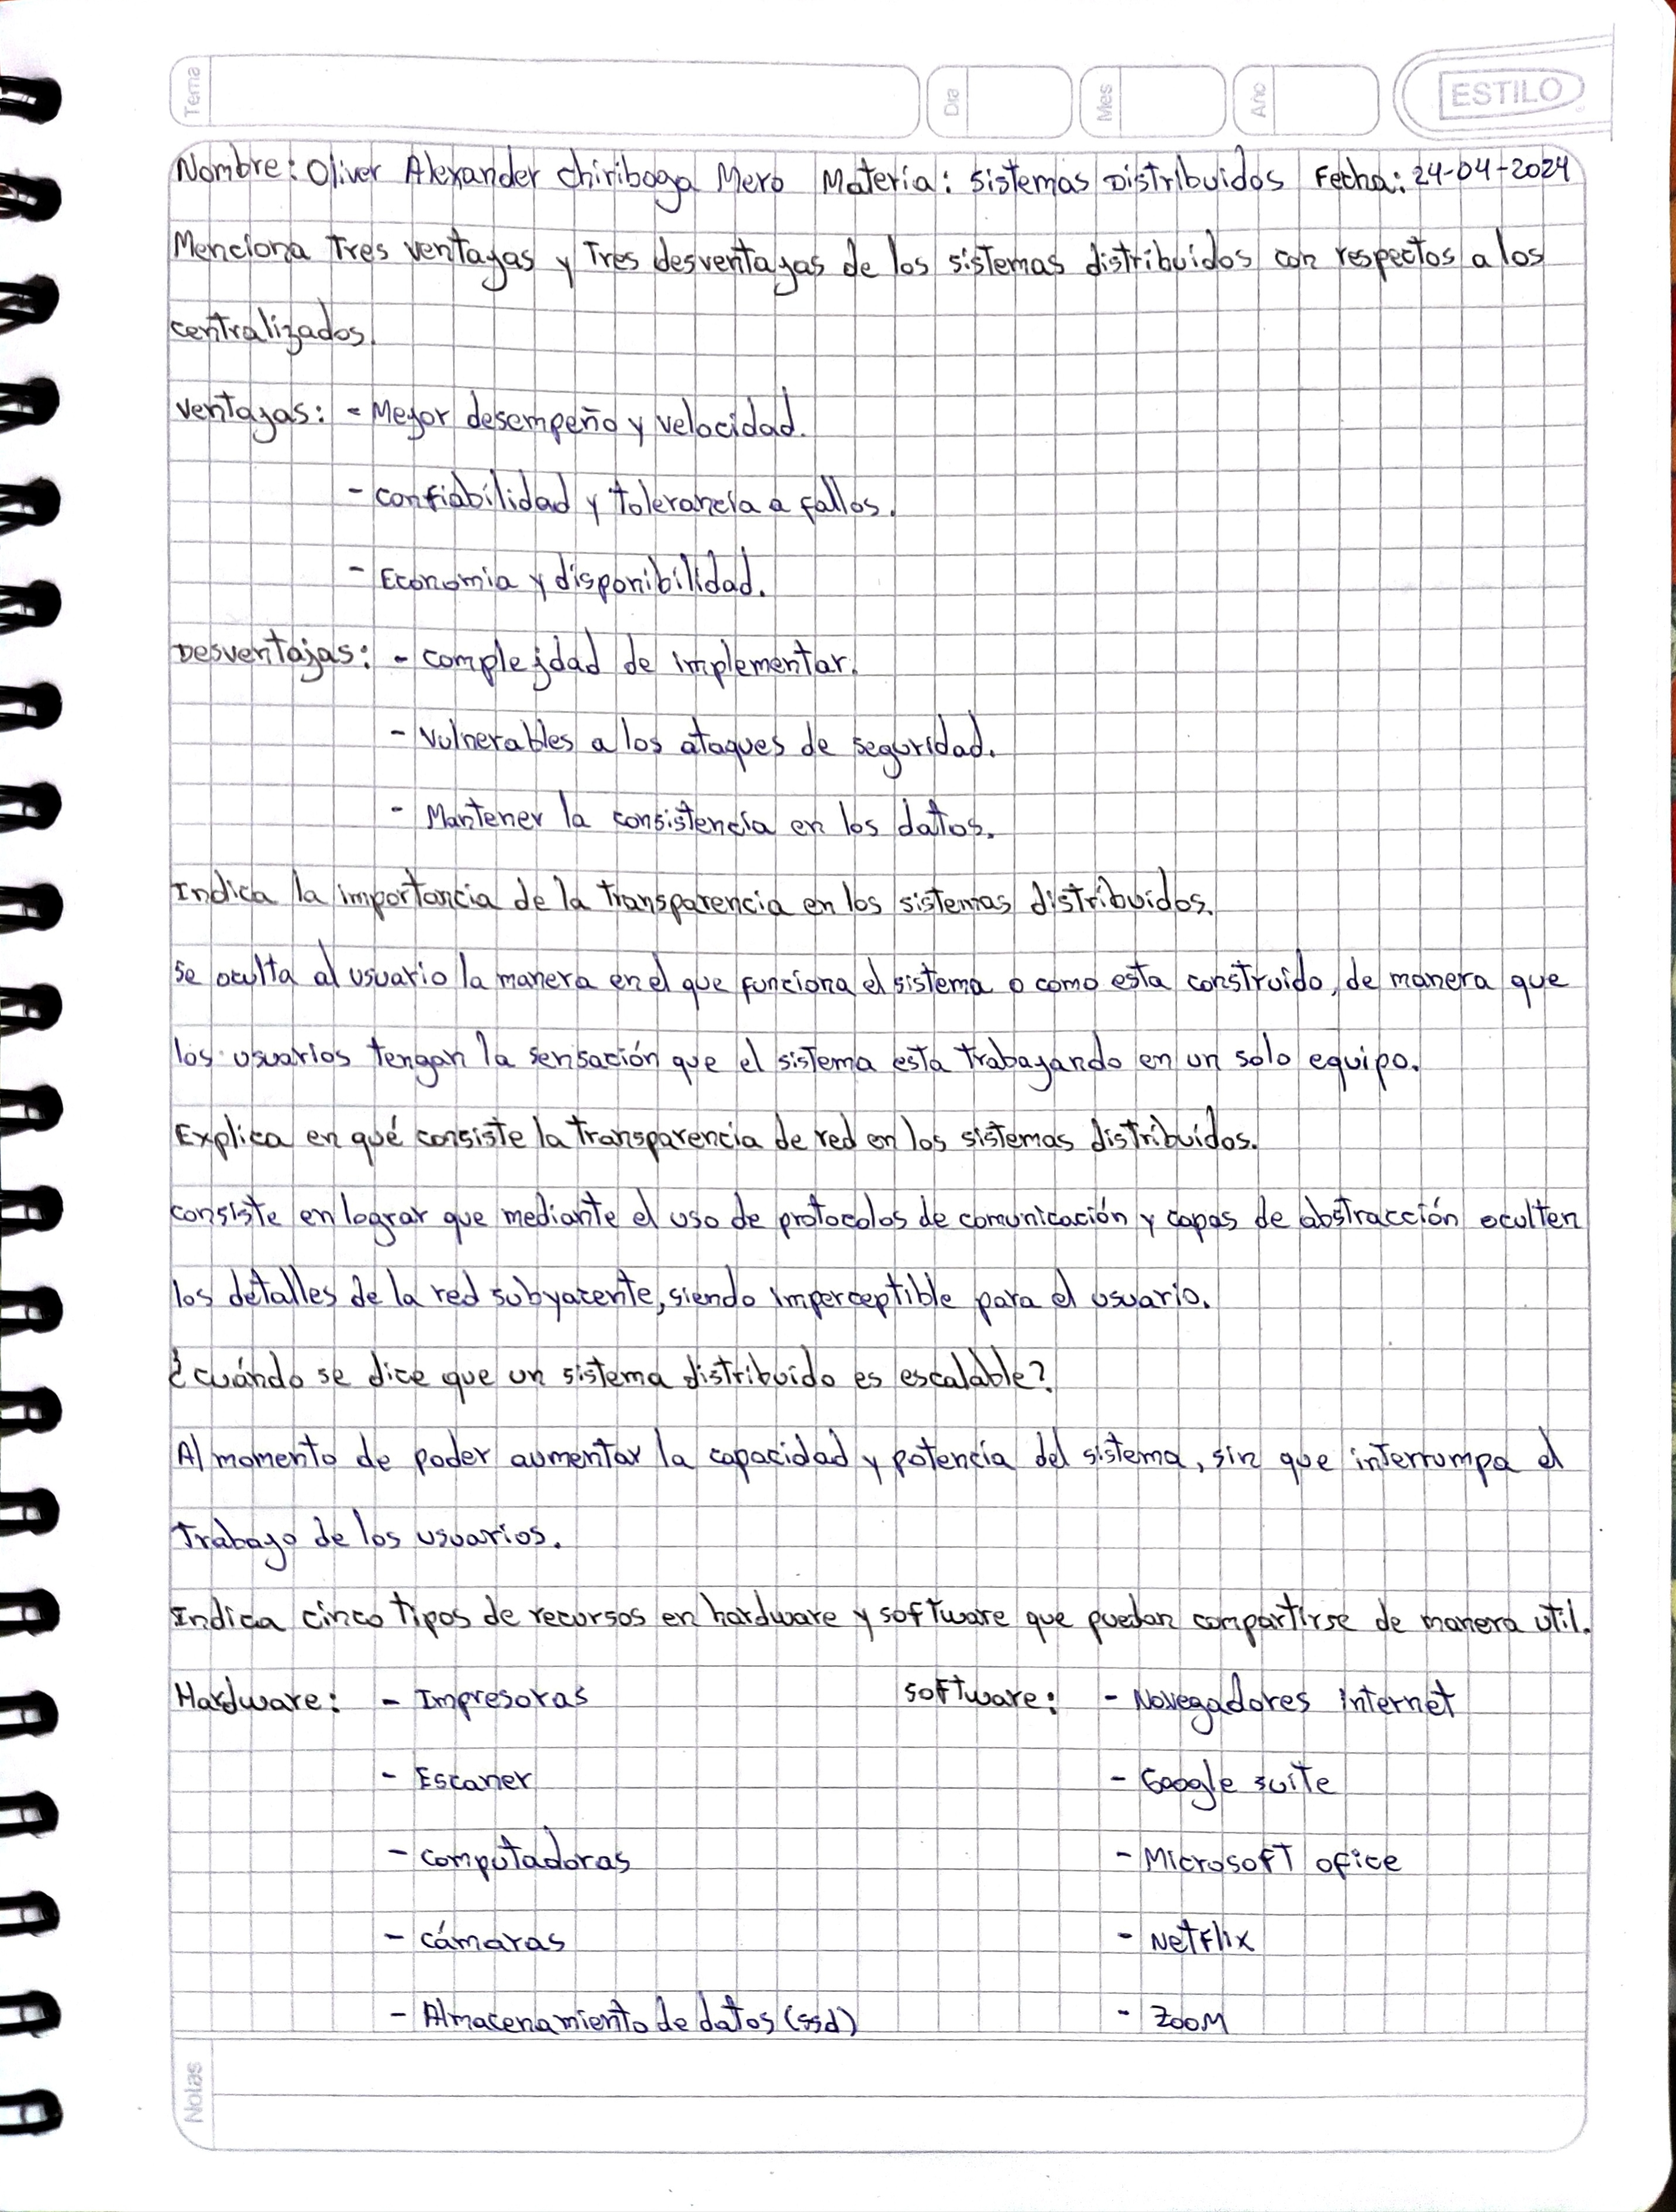 Tema
Dia
Mes
Año
ESTILO
Nombre: Oliver Alexander Chiriboga Mero Materia: Sistemas Distribuidos Fecha: 24-04-2024
Menciona Tres ventayas y Tres desventayas de los sistemas distribuidos con respectos a los
centralizados.
Ventayas: - Meyor desempeño y velocidad.
- Confiabilidad y tolerancia a fallos.
- Economia y disponibilidad.
Desventajas: - complejdad de implementar.
- Vulnerables a los ataques de seguridad.
- Mantener la consistencia en los datos.
Indica la importancia de la transparencia en los sistemas distribuidos.
Se oculta al usuario la manera en el que funciona el sistema o como esta construido, de manera que
los usuarios tengan la sensación que el sistema esta trabayando en un solo equipo.
Explica en qué consiste la transparencia de red en los sistemas distribuidos.
consiste en lograr que mediante el uso de protocolos de comunicación y capas de abstracción oculten
los detalles de la red subyacente, siendo imperceptible para el usuario.
¿cuándo se dice que un sistema distribuido es escalable?
Al momento de poder aumentar la capacidad y potencia del sistema, sin que interrumpa el
Trabayo de los usuarios.
Indica cinco tipos de recursos en hardware y software que puedan compartirse de manera util.
Hardware: - Impresoras software: - Navegadores internet
- Escaner - Google suite
- computadoras - Microsoft ofice
- cámaras - Netflix
- Almacenamiento de datos (ssd) - Zoom
Notas